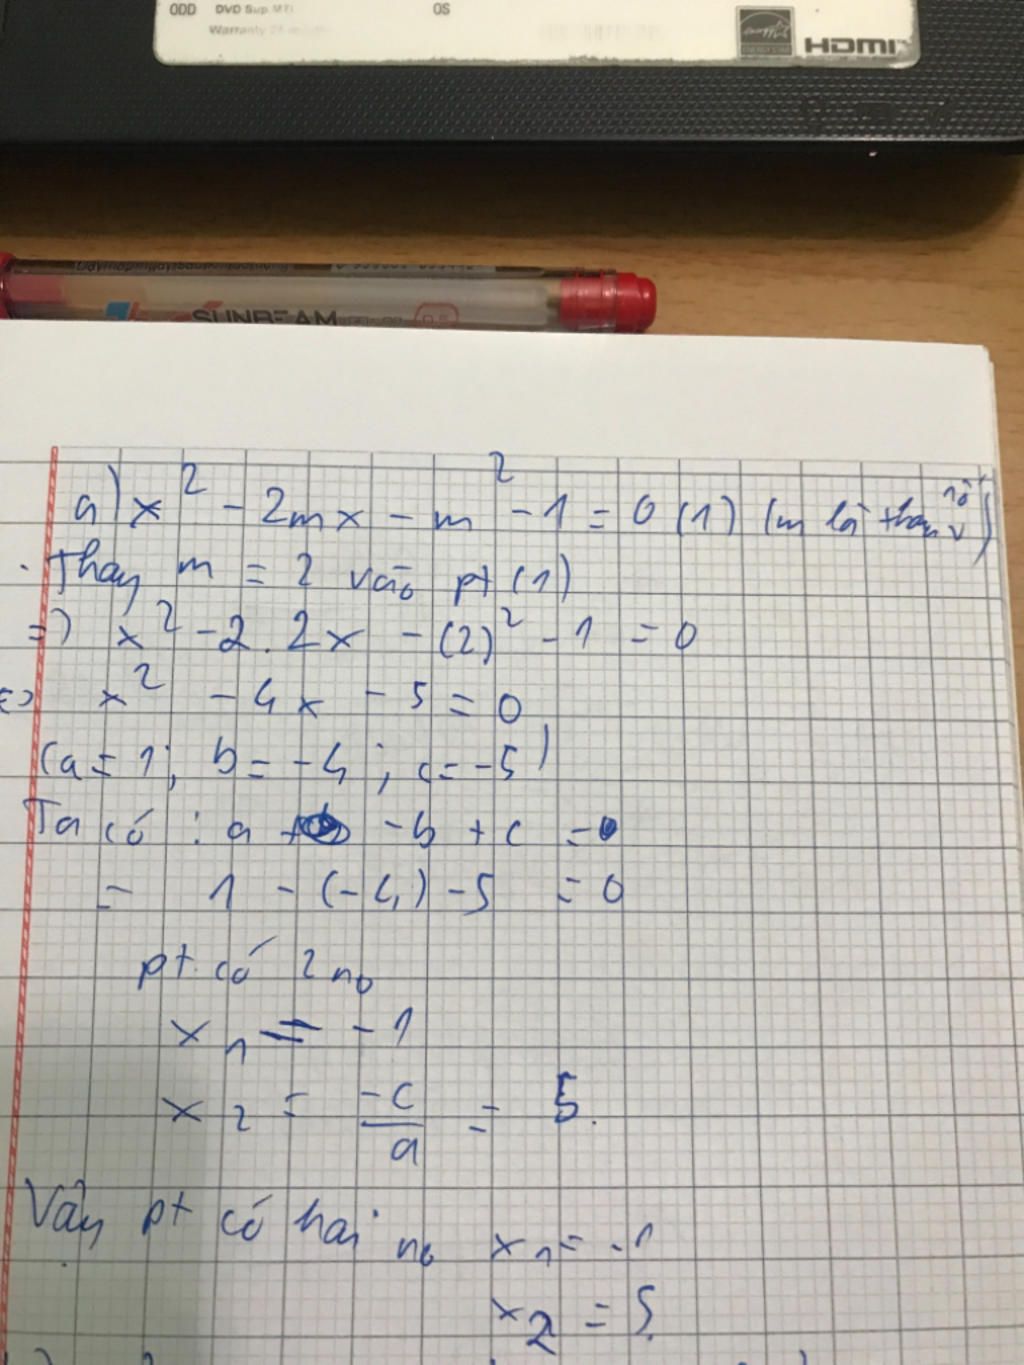 ODD DVD Sup MTI OS
Warranty
HDMI
SUNBEAM 0.5
a) x² - 2mx - m² - 1 = 0 (1) (m là tham số)
Thay m = 2 vào pt (1)
=) x² - 2.2x - (2)² - 1 = 0
x² - 4x - 5 = 0
(a = 1; b = -4; c = -5)
Ta có : a - b + c = 0
= 1 - (-4) - 5 = 0
pt có 2 no
x₁ = -1
x₂ = -c/a = 5.
Vậy pt có hai no x₁ = -1
x₂ = 5.